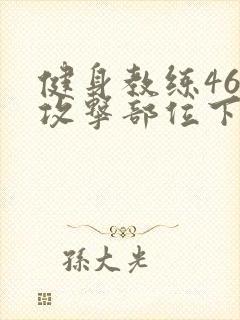 健身教练46
攻擊部位下
孫大光